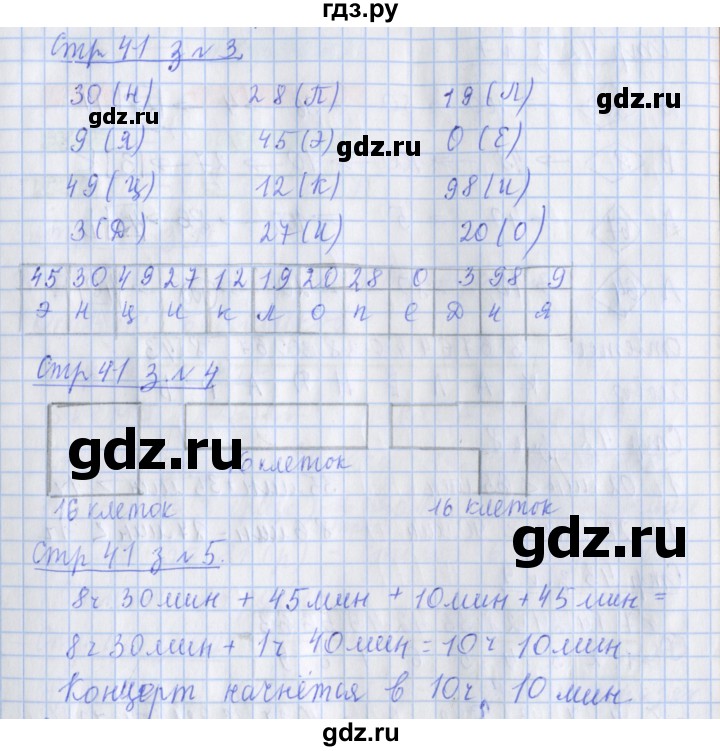 гдз.ру
Стр 41 з № 3.
30 (Н) 28 (П) 19 (Л)
gdz.ru gdz.ru
9 (Я) 45 (Э) 0 (Е)
gdz.ru
49 (Ц) 12 (К) 98 (И)
3 (Д) 27 (И) 20 (О)
45 30 49 27 12 19 20 28 0 3 98 9
Э Н Ц И К Л О П Е Д И Я
Стр 41 з № 4
gdz.ru gdz.ru
16 клеток
16 клеток 16 клеток
gdz.ru
Стр 41 з № 5.
8ч 30мин + 45мин + 10мин + 45 мин =
8ч 30мин + 1ч 40мин = 10ч 10мин.
gdz.ru
Концерт начнётся в 10ч 10 мин.
gdz.ru
gdz.ru